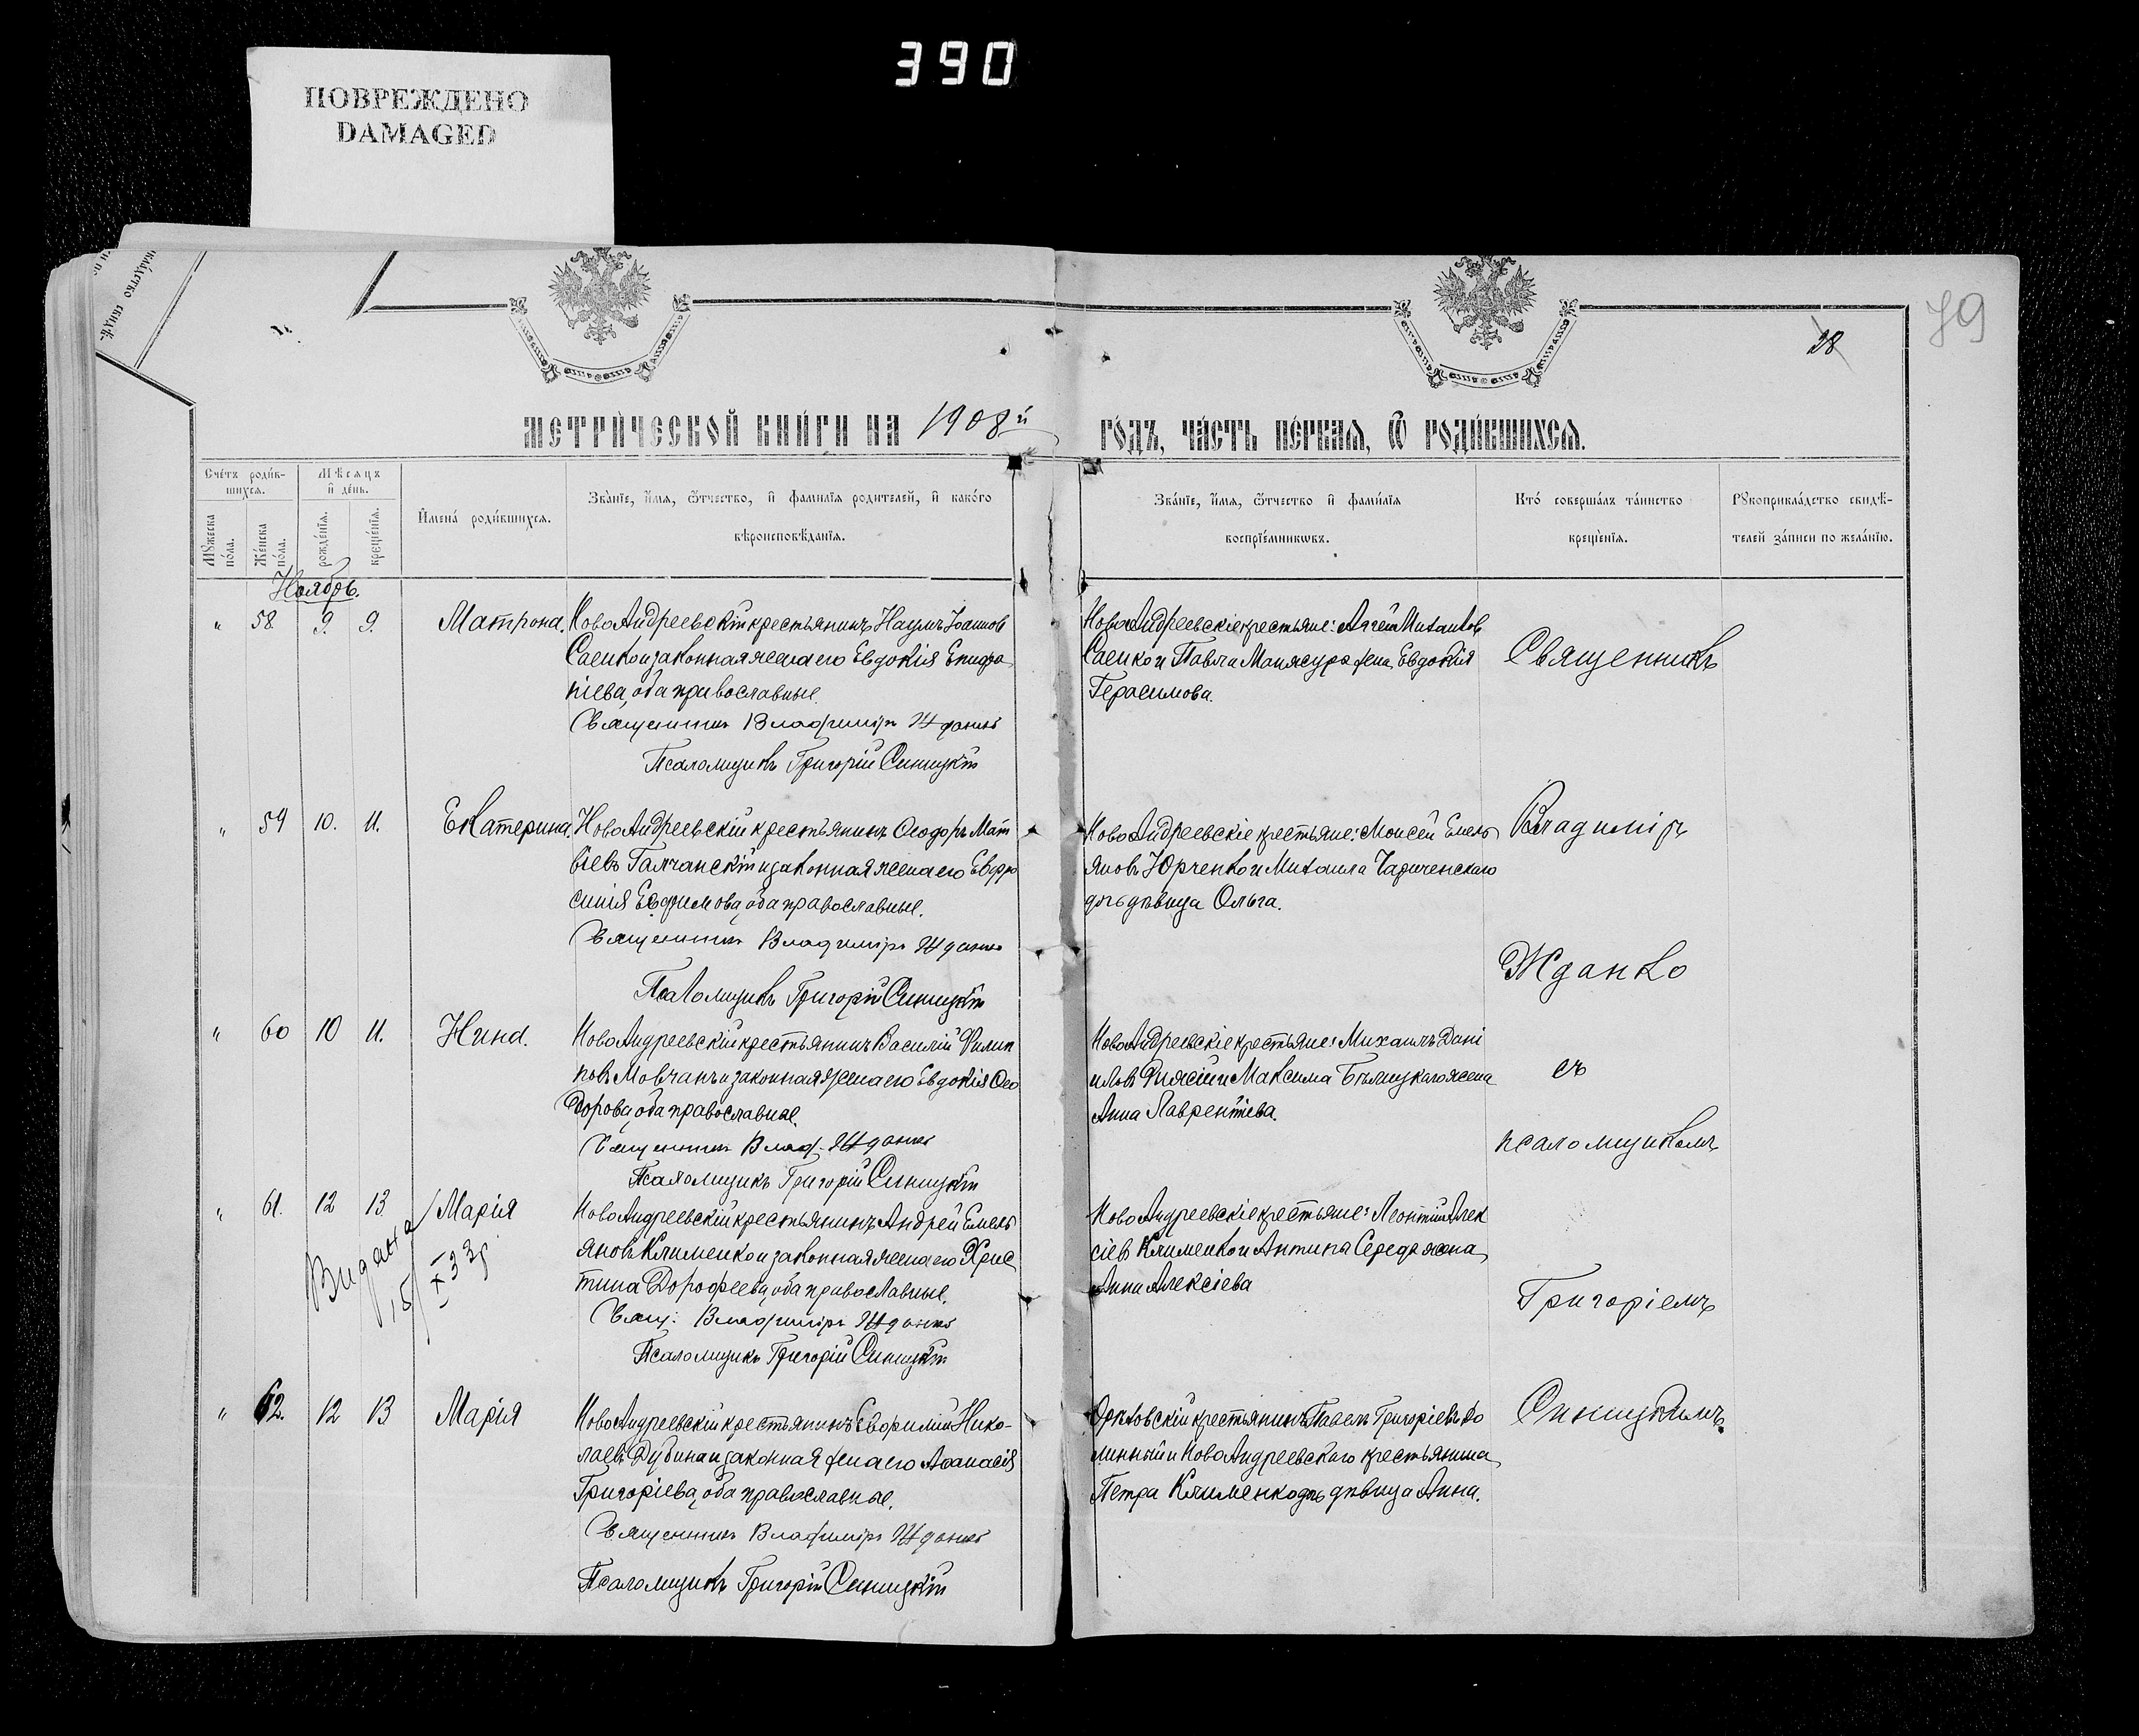 390
ПОВРЕЖДЕНО
DAMAGED
79
28
МЕТРИ́ЧЕСКОЙ КНИ́ГИ НА 1908й ГО́ДЪ, ЧА́СТЬ ПЕ́РВАЯ, Ѿ РОДИ́ВШИХСЯ.
Сче́тъ роди́в-
шихся.
Мѣсяцъ
и де́нь.
Мꙋжеска по́ла.
Же́нска по́ла.
рожде́нїя.
креще́нїя.
Имена́ роди́вшихся.
Зва́нїе, и́мя, ѻ҆́тчество, и фами́лїя родителей, и како́го
вѣроисповѣ́данїя.
Зва́нїе, и́мя, ѻ҆́тчество и фами́лїя
воспрїе́мникѡвъ.
Кто́ соверша́лъ та́инство
креще́нїя.
Рꙋкоприкла́дство свидѣ́-
телей за́писи по жела́нїю.
Ноябрь.
" 58 9. 9. Матрона.
НовоАндреевскій крестьянинъ Наумъ Іоаннов
Саенко и законная жена его Евдокія Епифа
ніева, оба православные.
Священникъ Владиміръ Жданко
Псаломщикъ Григорій Синицкій
НовоАндреевскіе крестьяне: Аггей Михаилов
Саенко и Павла Манжура жена Евдокія
Герасимова.
Священникъ
" 59 10. 11. Екатерина.
НовоАндреевскій крестьянинъ Ѳеодоръ Мат
віевъ Галчанскій и законная жена его Евфро
синія Евфимова, оба православные.
Священникъ Владиміръ Жданко
Псаломщикъ Григорій Синицкій
НовоАндреевскіе крестьяне: Моисей Емель
яновъ Юрченко и Михаила Чариченскаго
дочь дѣвица Ольга.
Владиміръ
Жданко
" 60 10 11. Нина.
НовоАндреевскій крестьянинъ Василій Филип
повъ Мовчанъ и законная жена его Евдокія Ѳео
дорова, оба православные.
Священникъ Влад. Жданко
Псаломщикъ Григорій Синицкій
НовоАндреевскіе крестьяне: Михаилъ Дані
иловъ и Максима Бѣлицкаго жена
Анна Лаврентіева.
съ
псаломщикомъ
" 61. 12 13 Марія
НовоАндреевскій крестьянинъ Андрей Емель
яновъ Клименко и законная жена его Хрис
тина Дорофеева, оба православные.
Свящ: Владиміръ Жданко
Псаломщикъ Григорій Синицкій
НовоАндреевскіе крестьяне: Леонтій Алек
сіевъ Клименко и Антипа Середа жена
Анна Алексіева
Григоріемъ
" 62. 12 13 Марія
НовоАндреевскій крестьянинъ Евфимій Нико-
лаевъ Дубина и законная жена его Аѳанасія
Григоріева, оба православные.
Священникъ Владиміръ Жданко
Псаломщикъ Григорій Синицкій
крестьянинъ Павелъ Григоріевъ
и НовоАндреевскаго крестьянина
Петра Клименко дочь дѣвица Анна.
Синицкимъ.